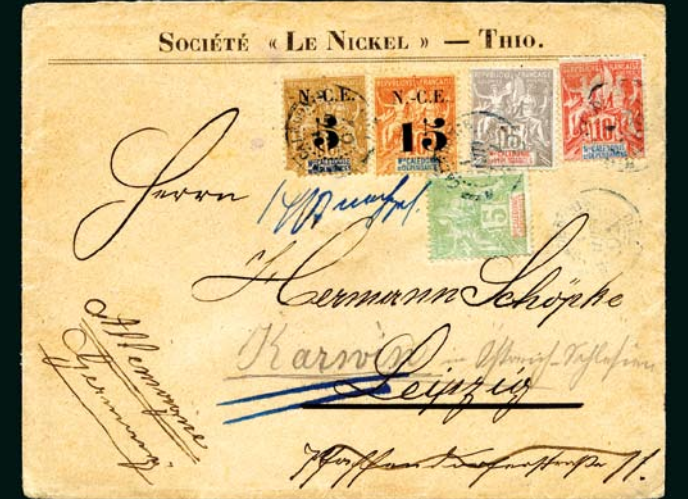 SOCIÉTÉ « LE NICKEL » — THIO.
N.-C.E.
5
N.-C.E.
15
15
10
5
Herrn
Hermann Schöpke
Karwin in Östreich-Schlesien
Leipzig
Pfaffendorferstraße 11.
Allemagne
Germany.